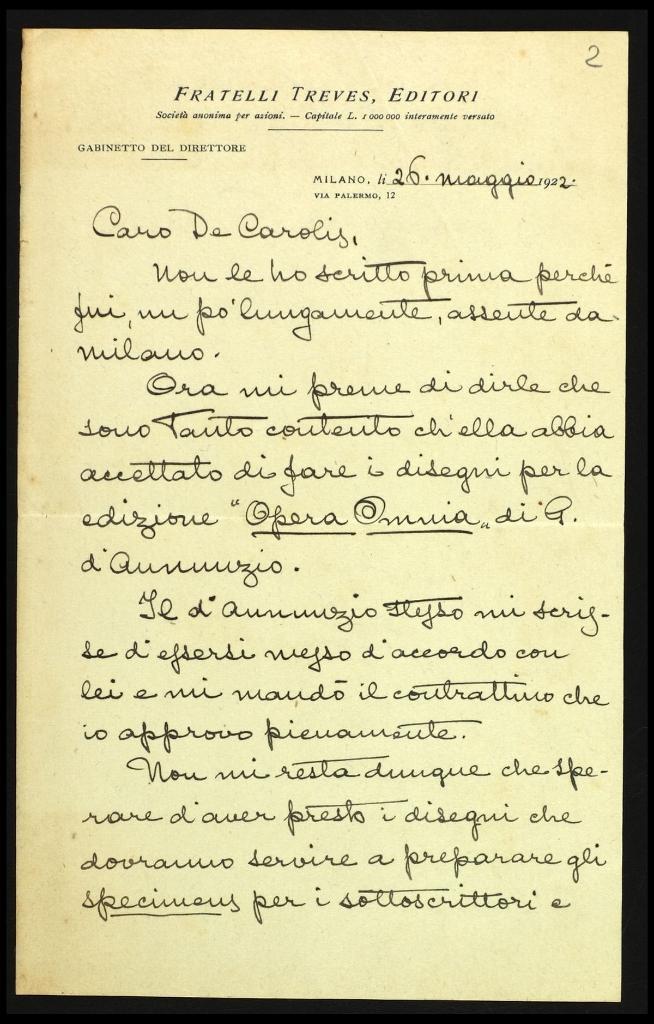 2
FRATELLI TREVES, EDITORI
Società anonima per azioni. — Capitale L. 1 000 000 interamente versato
GABINETTO DEL DIRETTORE
MILANO, li 26. maggio 1922.
VIA PALERMO, 12
Caro De Carolis,
Non le ho scritto prima perché
fui, un po' lungamente, assente da
Milano.
Ora mi preme di dirle che
sono tanto contento ch'ella abbia
accettato di fare i disegni per la
edizione "Opera Omnia" di G.
d'Annunzio.
Il d'Annunzio stesso mi scris-
se d'essersi messo d'accordo con
lei e mi mandò il contrattino che
io approvo pienamente.
Non mi resta dunque che spe-
rare d'aver presto i disegni che
dovranno servire a preparare gli
specimens per i sottoscrittori e